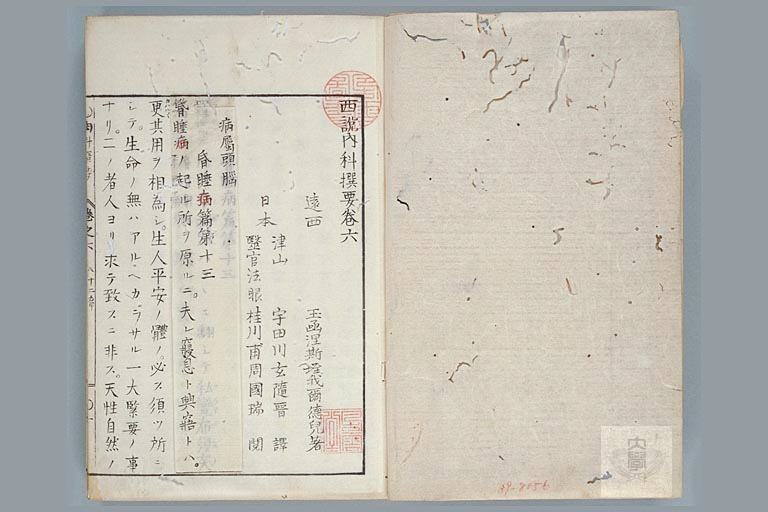 西說內科撰要卷六
遠西 玉函涅斯垤我爾德兒著
津山 宇田川玄隨晉 譯
日本
毉官法眼桂川甫周國瑞 閱
病屬頭腦
昏睡病篇第十三
昏睡病ノ起ル所ヲ原ルニ。夫レ寢息ト興寤トハ。
更其用ヲ相為シ。生人平安ノ體ノ。必ス須ツ所ニ
シテ。生命ノ無ハアルヘカラサル一大緊要ノ事
ナリ。二ノ者人ヨリ求テ致スニ非ス。天性自然ノ
卷之六
39-8056